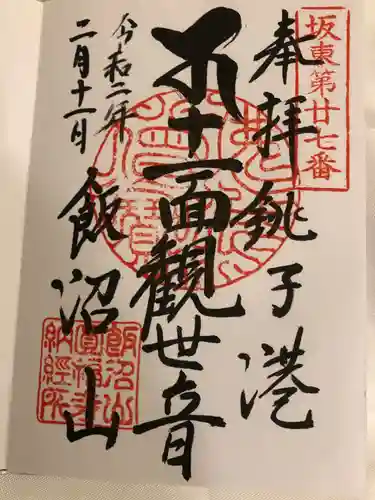 坂東第廿七番
奉拝 銚子港
十一面観世音
飯沼山
令和二年
二月十一日
飯沼山
圓福寺
納経所